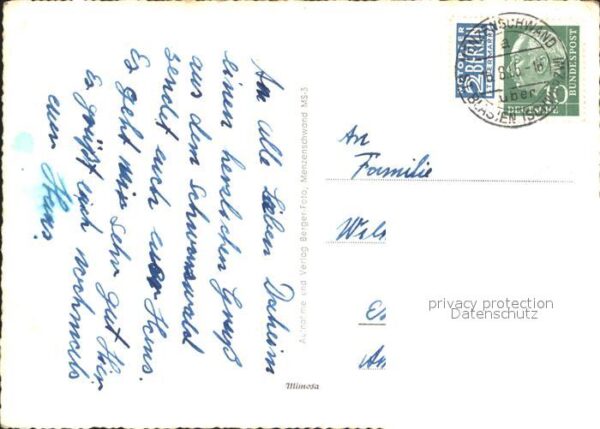 An alle Lieben Daheim
einen herzlichen Gruß
aus dem Schwarzwald
sendet euch euer Hans.
Es geht mir sehr gut hier
Es grüßt euch nochmals
euer Hans.
Aufnahme und Verlag Berger-Foto, Menzenschwand MS-3
Mimosa
NOTOPFER
2 BERLIN
STEUERMARKE
MENZENSCHWAND
a
über
BLASIEN
DEUTSCHE BUNDESPOST
10
An
Familie
privacy protection
Datenschutz